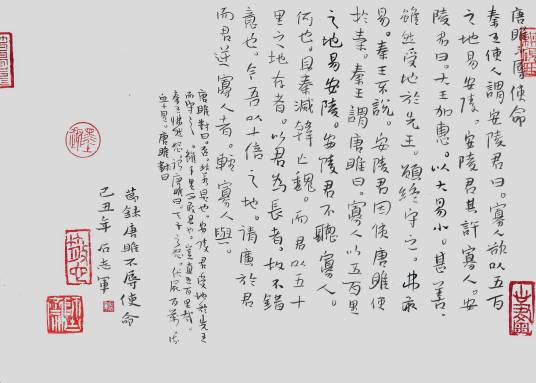 唐雎不辱使命
秦王使人謂安陵君曰。寡人欲以五百
之地易安陵。安陵君其許寡人。安
陵君曰。大王加惠。以大易小。甚善。
雖然受地於先王。願終守之。弗敢
易。秦王不說。安陵君因使唐雎使
於秦。秦王謂唐雎曰。寡人以五百里
之地易安陵。安陵君不聽寡人。
何也。且秦滅韓亡魏。而君以五十
里之地存者。以君為長者。故不錯
意也。今吾以十倍之地。請廣於君
而君逆寡人者。輕寡人與。
唐雎對曰。否。非若是也。安陵君受地於先王
而守之。雖千里不敢易也。豈直五百里哉。
秦王怫然怒。謂唐雎曰。天子之怒。伏屍百萬。流
血千里。唐雎對曰
節錄唐雎不辱使命
己丑年 石志軍